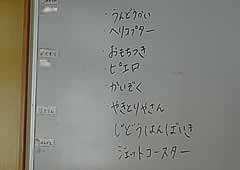 ・うんどうかい
・ヘリコプター
・おもちつき
・ピエロ
・かいぞく
・やきとりやさん
・じどうはんばいき
ジェットコースター